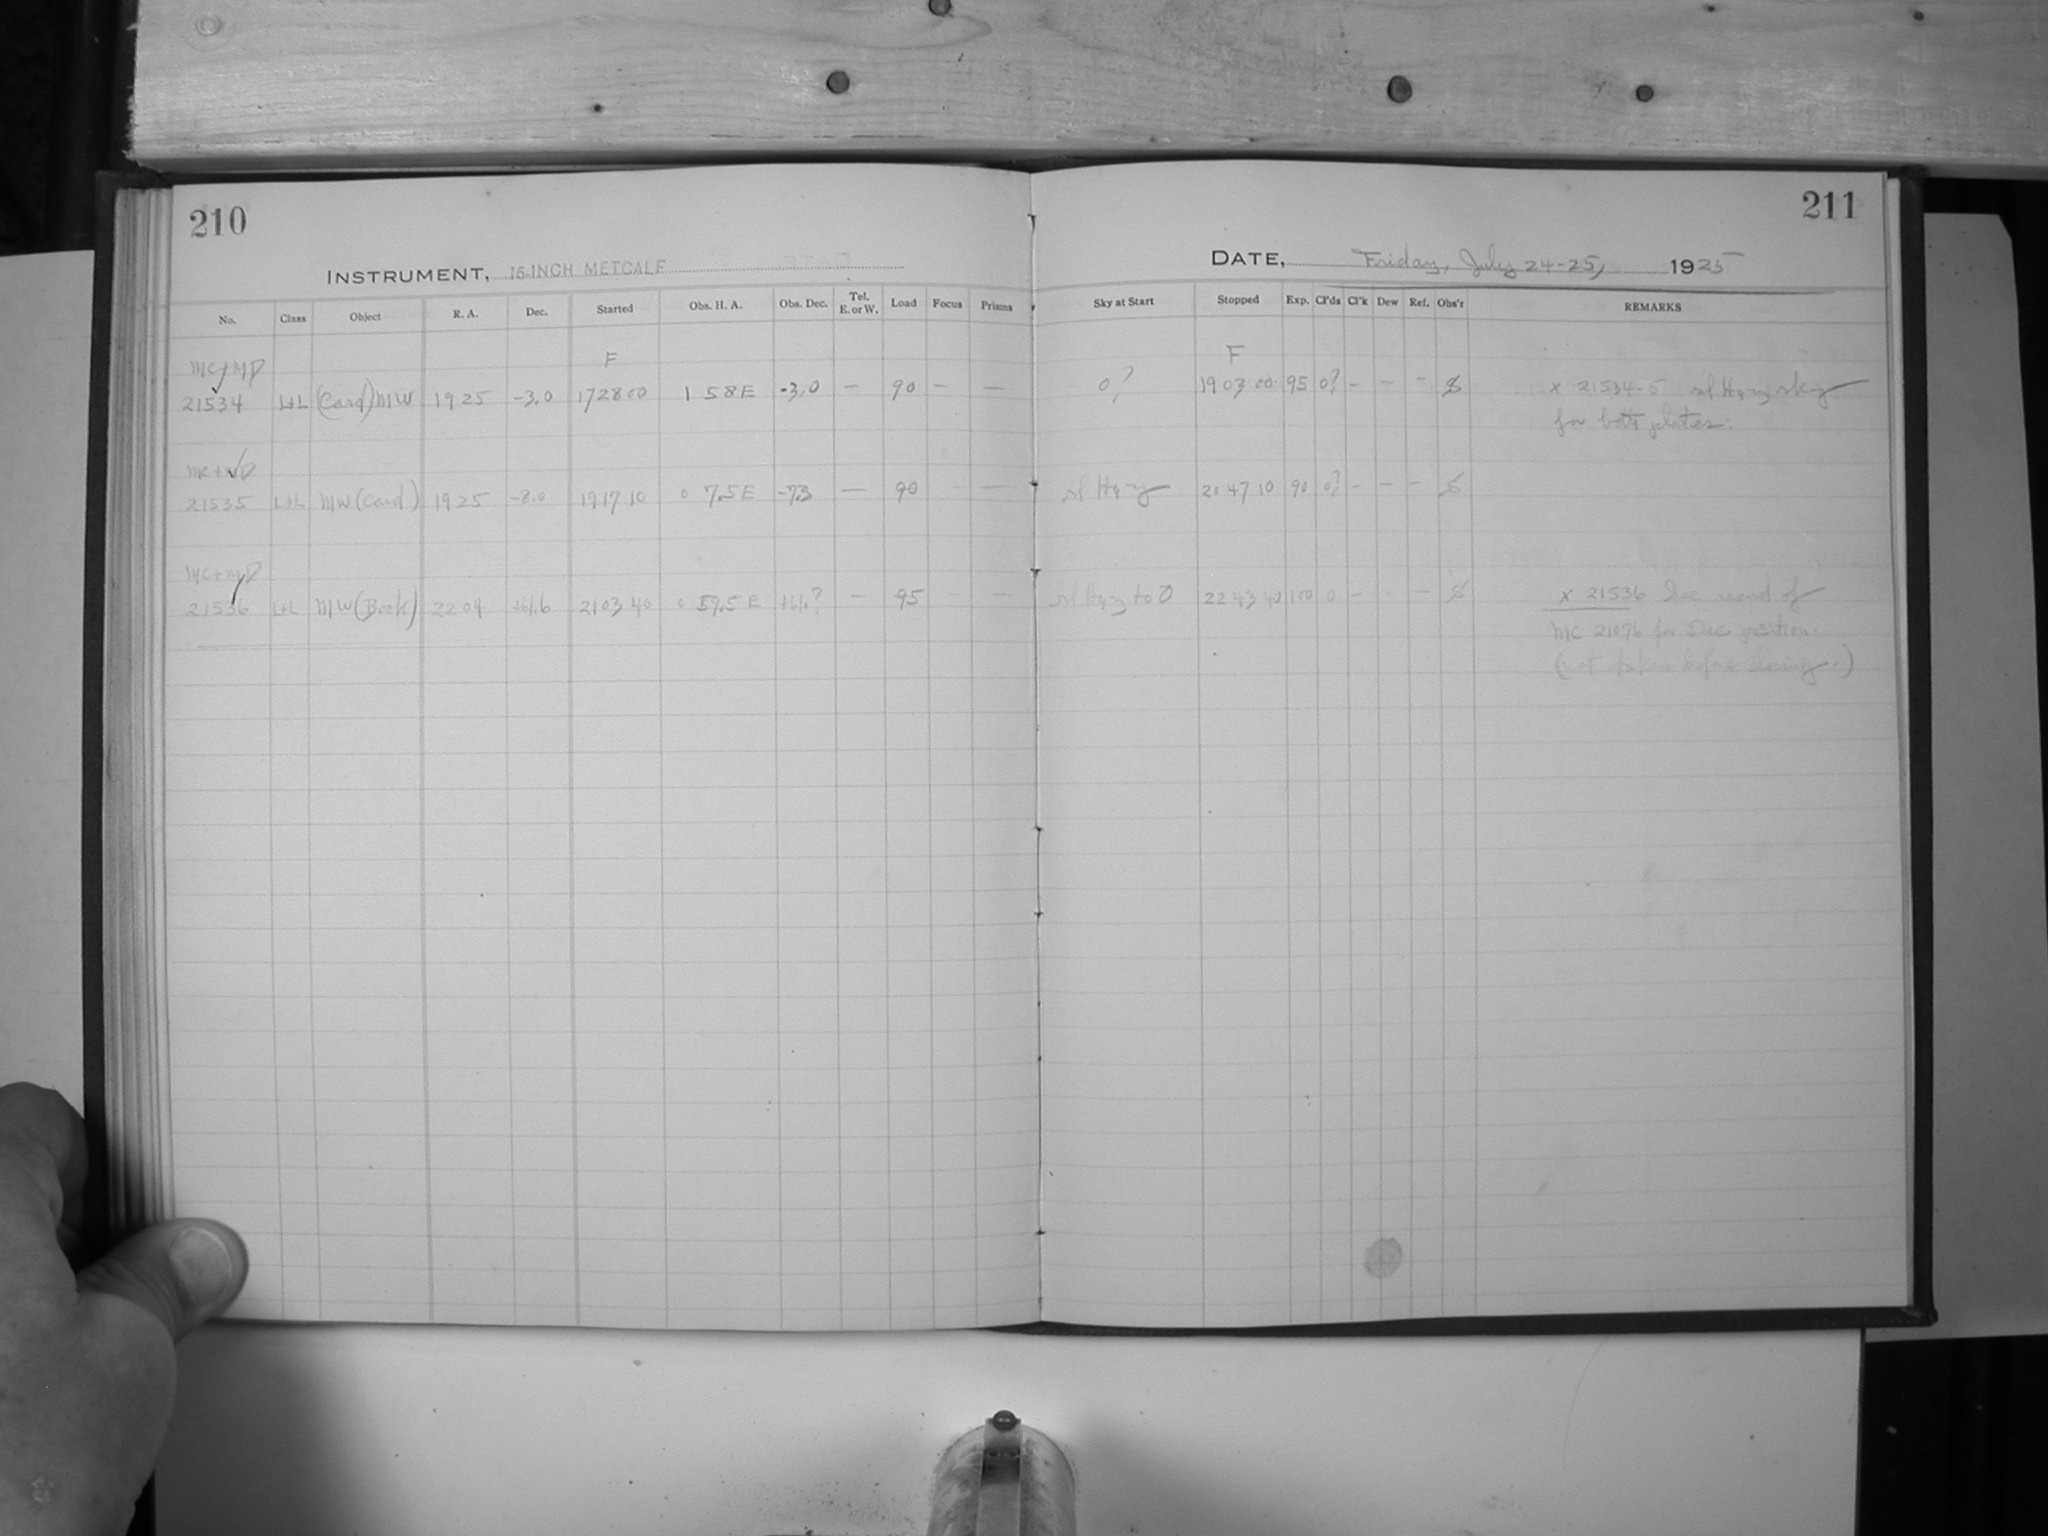 210
211
INSTRUMENT, 16-INCH METCALF
DATE, Friday, July 24-25, 1925
No. Class Object R. A. Dec. Started Obs. H. A. Obs. Dec. Tel. E. or W. Load Focus Prisms Sky at Start Stopped Exp. Cl'ds Cl'k Dew Ref. Obs'r REMARKS
MC+MD F F
21534 L+L (Card) MW 19 25 -3.0 17 28 00 1 58 E -3.0 — 90 — — 0? 19 03 00 95 0? - - - x 21534-5 sl Hzy sky
for both plates.
MC+MD
21535 L+L MW (Card) 19 25 -8.0 19 17 10 0 7.5 E -7.3 — 90 - — sl Hzy 20 47 10 90 0? - - -
MC+MD
21536 L+L MW (Book) 22 04 21 03 40 0 59.5 E — 95 - — sl Hzy to 0 22 43 40 100 0 - - - x 21536 See record of
MC for Dec position.
(not taken before )